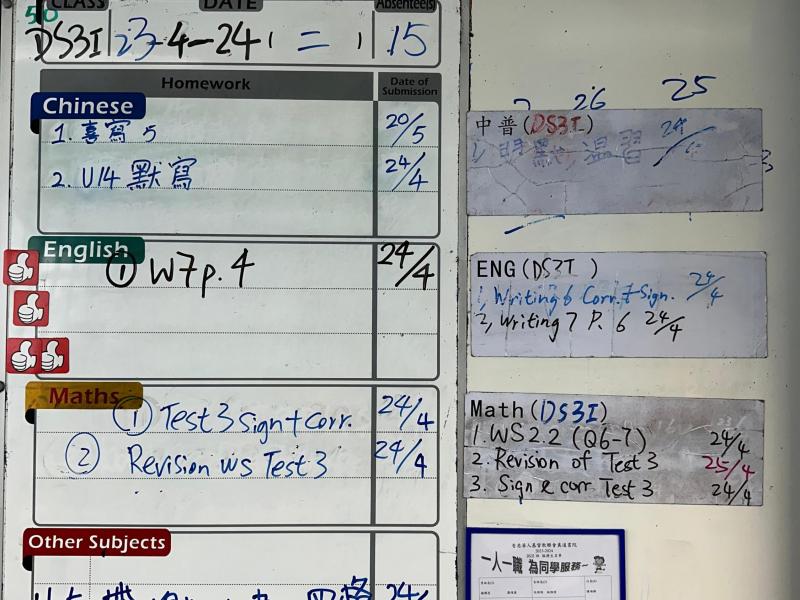 50
CLASS DATE Absentee(s)
DS3I 23-4-24 ( 二 ) 15
Homework Date of Submission
Chinese
1. 喜寫 5 20/5
2. U14 默寫 24/4
English
① W7 p. 4 24/4
Maths
① Test 3 sign + corr. 24/4
② Revision ws Test 3 24/4
Other Subjects
24/
26 25
中普(DS3I)
1, 明默, 温習 24/
ENG (DS3I )
1, Writing 6 Corr. + Sign. 24/4
2, Writing 7 P. 6 24/4
Math (DS3I)
1. WS 2.2 (Q6-7) 24/4
2. Revision of Test 3 25/4
3. Sign & corr. Test 3 24/4
2023-2024
一人一職 為同學服務~